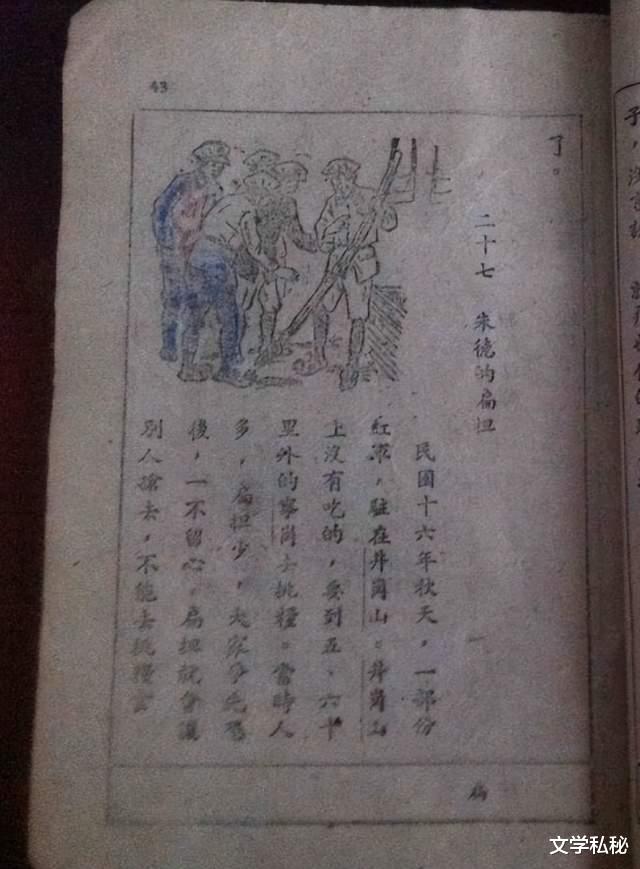 43
了。
二十七 朱德的扁担
民國十六年秋天，一部份
紅軍，駐在井崗山。井崗山
上沒有吃的，要到五、六十
里外的寧崗去挑糧。當時人
多，扁担少，大家爭先恐
後，一不留心，扁担就會讓
別人搶去，不能去挑糧
扁
子，
文学私秘